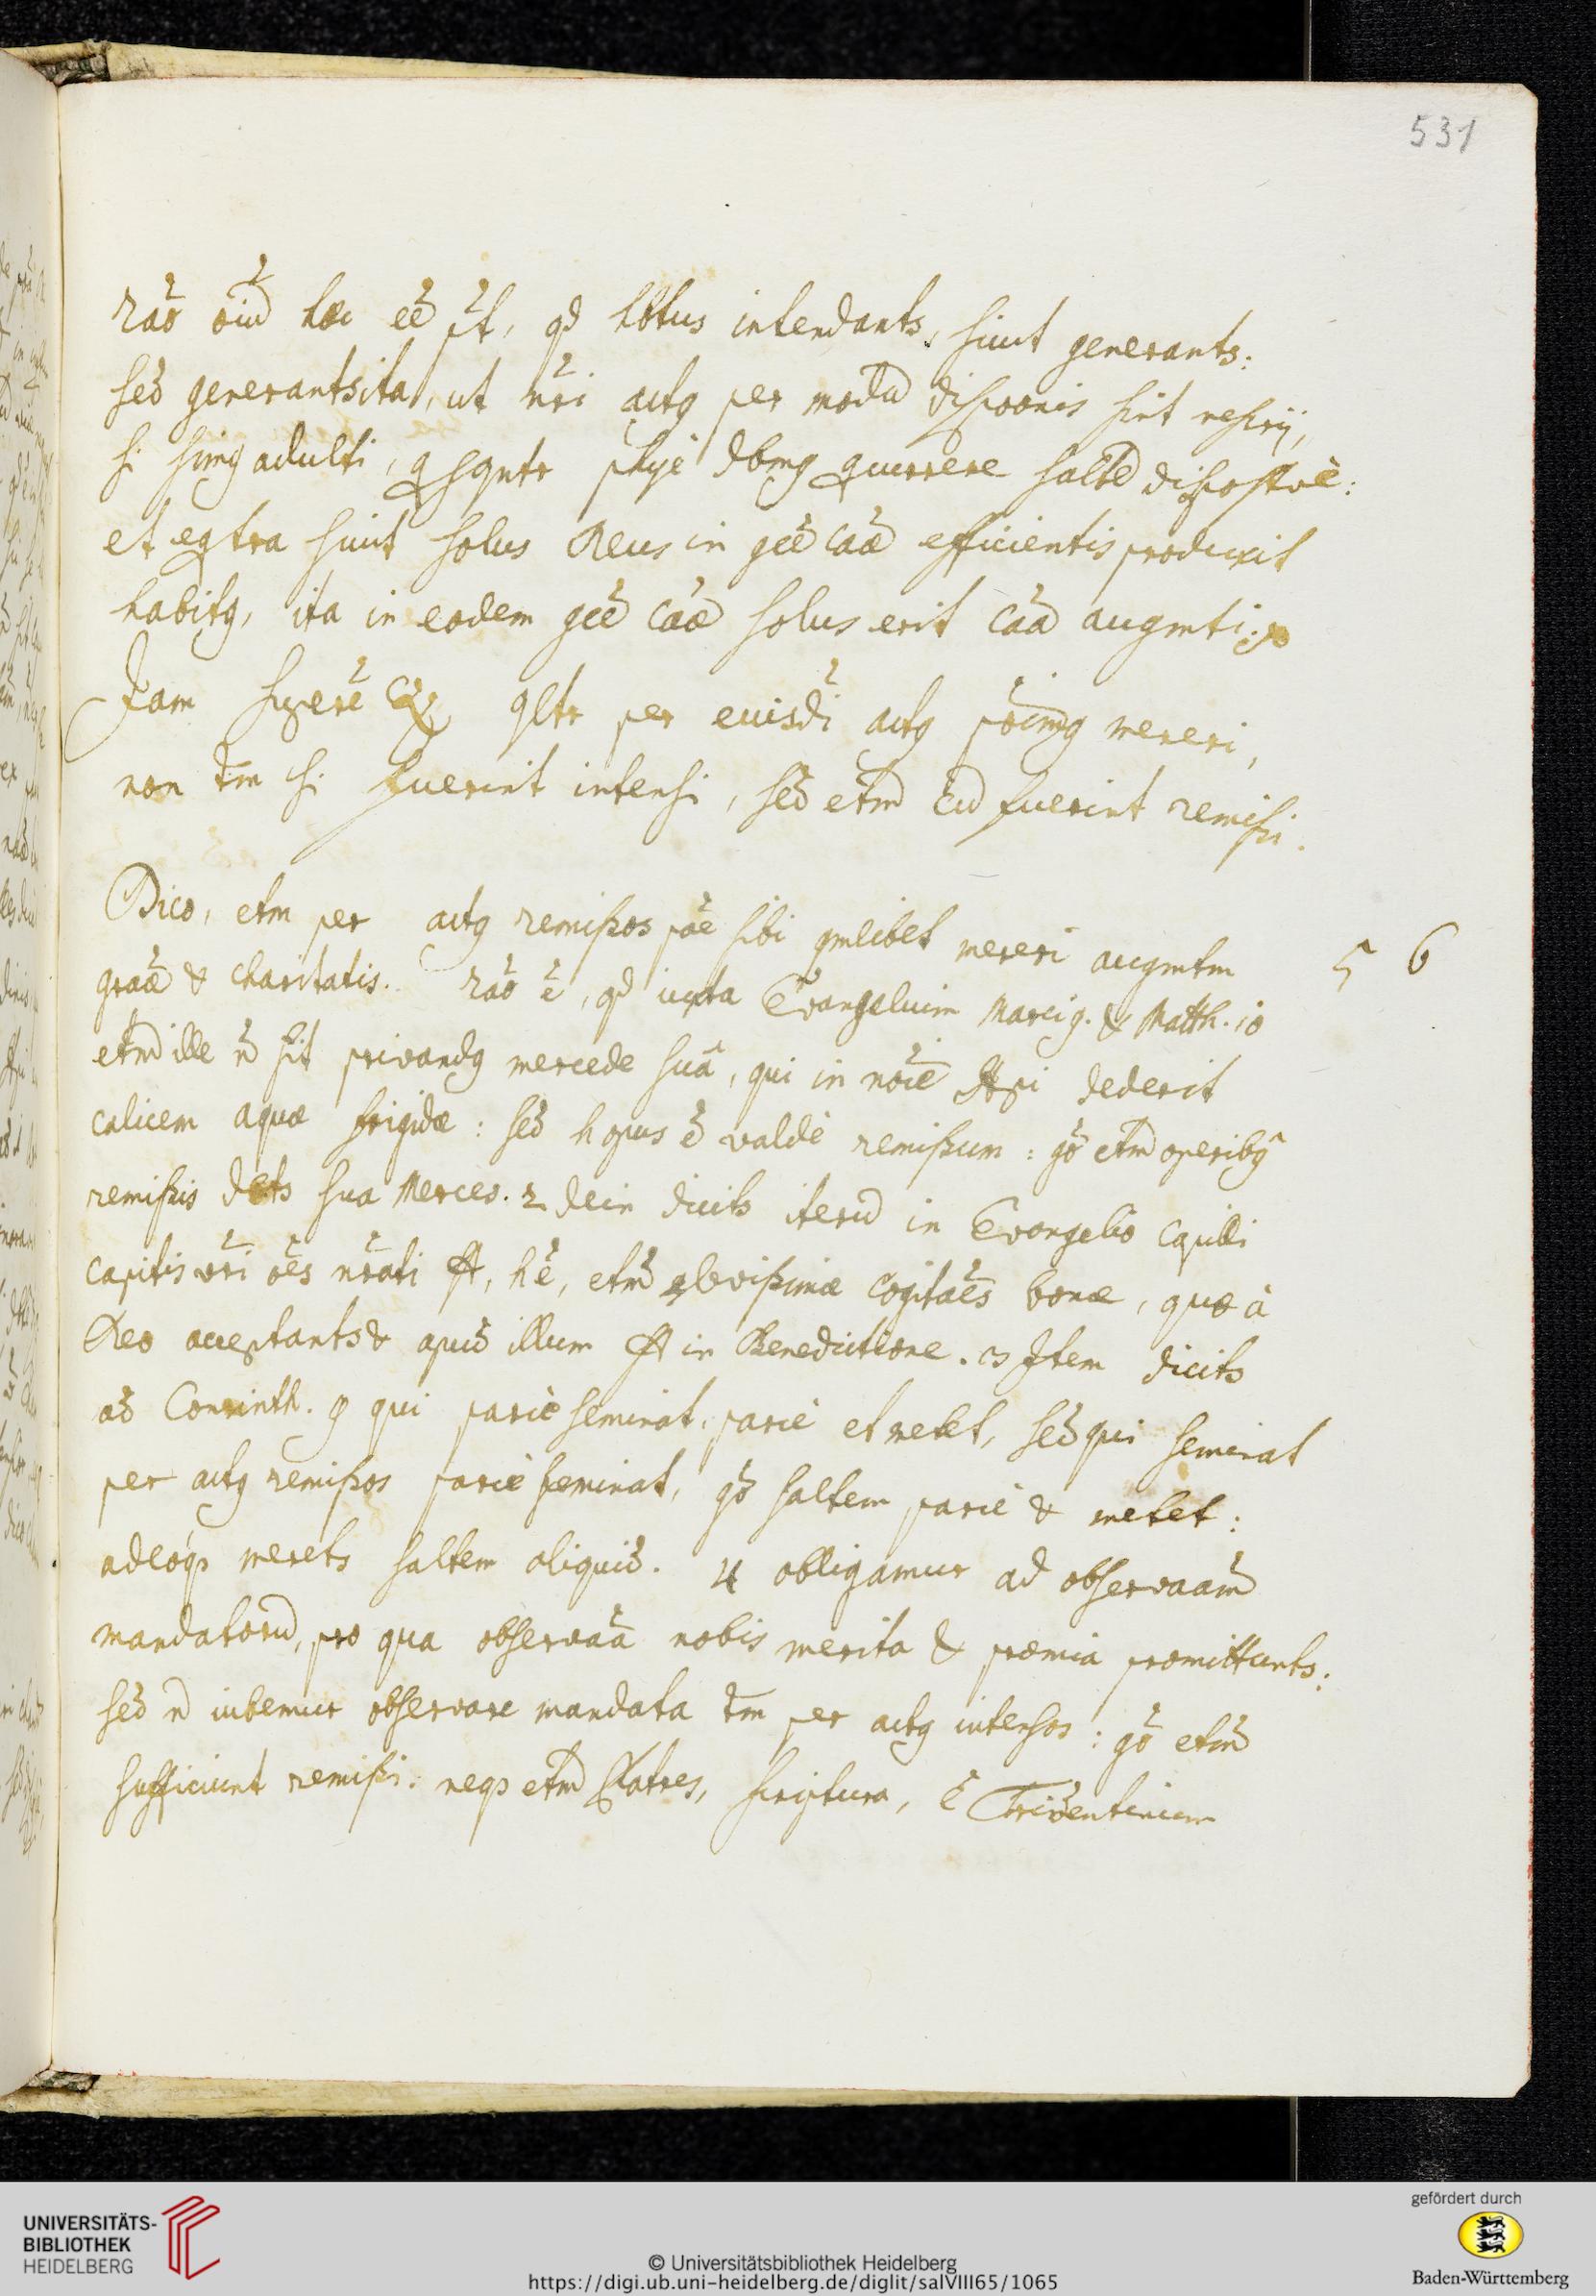 531
rãõ oiũ hæc eẽ pt, qd hbtus intendants, sicut generants:
sed generants ita, ut nri actq per modũ dispoonis sint nesrij,
si simq adulti, q sqntr phyè dbmq qurrere saltẽ dispostvè:
et eqtra sicut solus Deus in gẽe cãæ efficientis produxit
habitq, ita in eodem gẽe cãæ solus erit cãa augmti.
Jam superẽ qltr per euisdi actq poimq mereri,
non tm si fuerint intensi, sed etm cũ fuerint remissi.
Dico, etm per actq remissos põe sibi qmlibet mereri augmtm
5 6
grãæ & charitatis. rãõ ẽ, qd iuxta Evangelium Marci 9. & Matth. 10
etm ille ñ sit privandq mercede suâ, qui in noiẽ Xpi dederit
calicem aquæ frigidæ: sed h opus ẽ valdè remissum: gõ etm operibq
remissis dets sua Merces. 2 dein dicits iterũ in Evangelio capilli
capitis vri oẽs nrati st, h ẽ, etm levissimæ cogitaẽs bonæ, quæ à
Deo acceptants & apud illum st in Benedictione. 3 Item dicits
ad Corinth. 9 qui parcè seminat, parcè et metet, sed qui seminat
per actq remissos parcè seminat, gõ saltem parcè & metet:
adeoqs merets saltem aliquid. 4 obligamur ad observaãm
mandatorũ, pro qua observaã nobis merita & præmia promittunts:
sed ñ iubemur observare mandata tm per actq intensos: gõ etm
sufficiunt remissi. neqs etm Patres, scriptura, Tridentinum
UNIVERSITÄTS-
BIBLIOTHEK
HEIDELBERG
© Universitätsbibliothek Heidelberg
https://digi.ub.uni-heidelberg.de/diglit/salVIII65/1065
gefördert durch
Baden-Württemberg